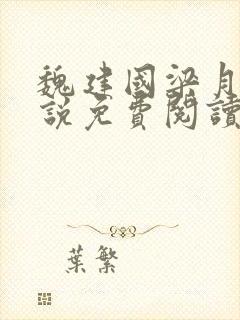 魏建國梁月
說免費閱讀
葉繁